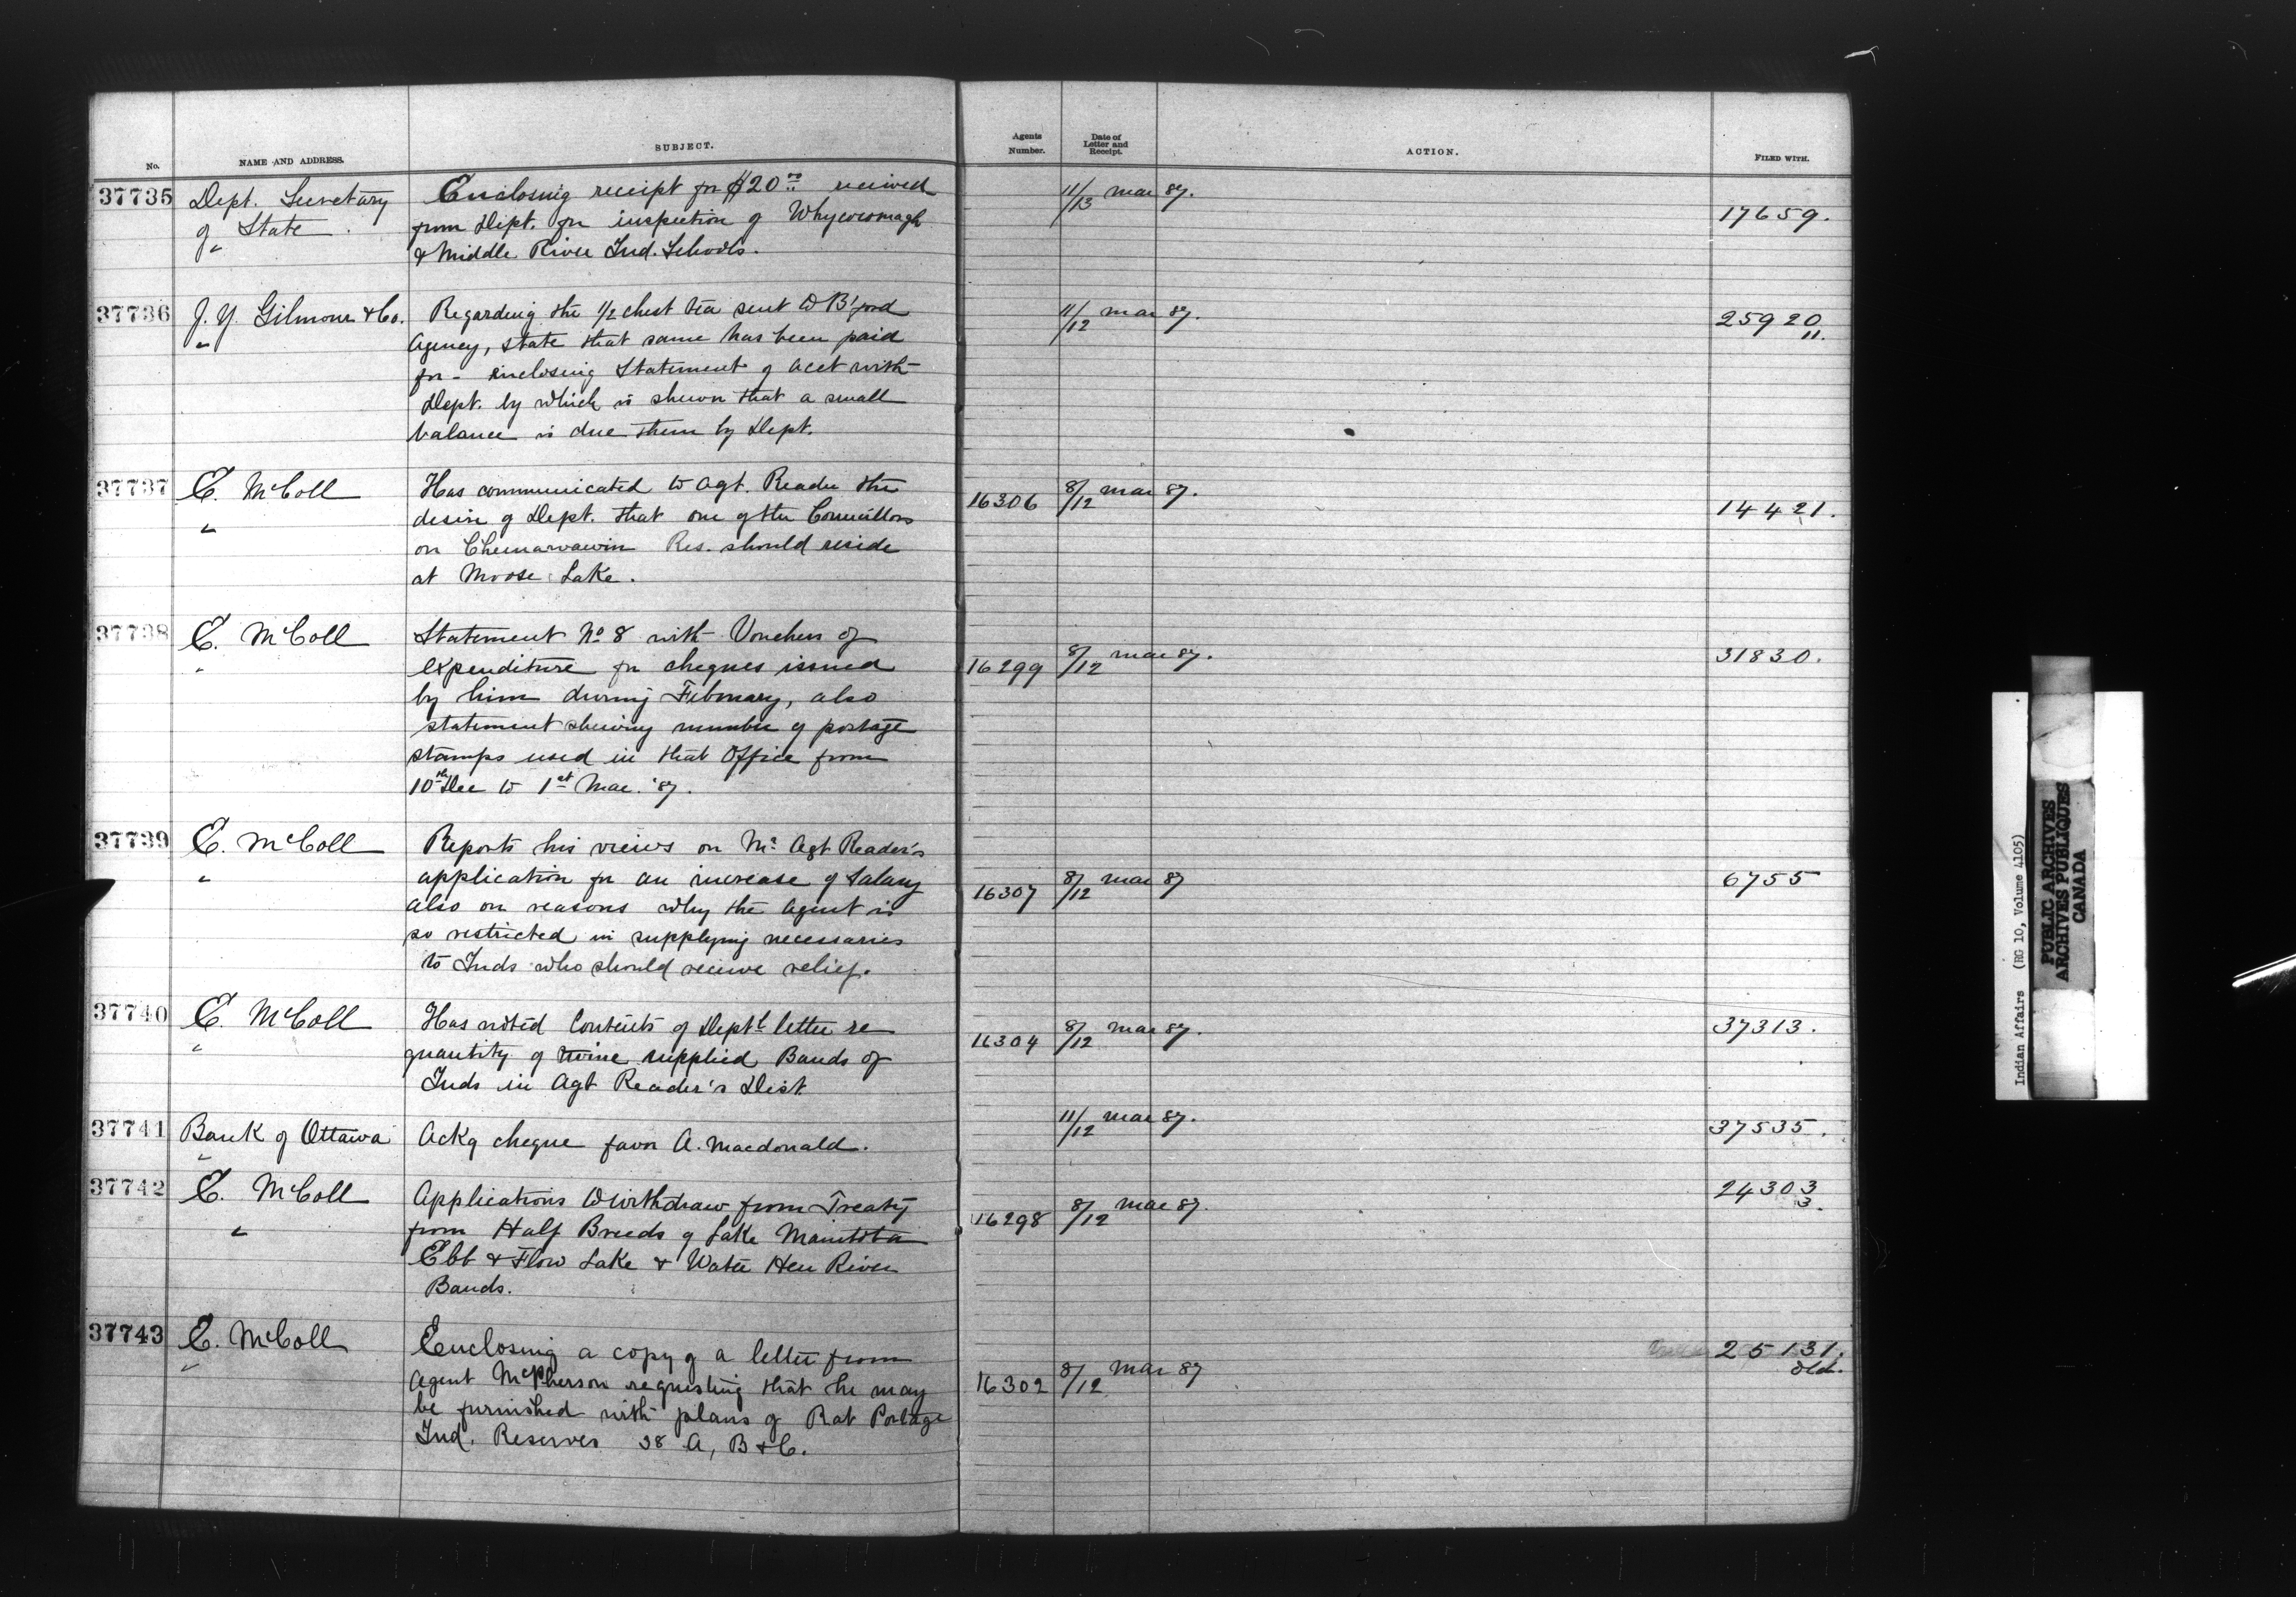 No. NAME AND ADDRESS. SUBJECT. Agents Number. Date of Letter and Receipt. ACTION. FILED WITH.
37735 Dept. Secretary Enclosing receipt for $20.00 received 11/13 Mar 87. 17659.
of State. from Dept. for inspection of Whycocomagh
" & Middle River Ind. Schools.
37736 J. Y. Gilmour & Co. Regarding the 1/2 chest tea sent to B'ford 11/12 Mar 87. 25920
" Agency, state that same has been paid 11.
for - enclosing Statement of acct with
Dept. by which is shewn that a small
balance is due them by Dept.
37737 E. McColl Has communicated to Agt. Reader the 16306 8/12 Mar 87. 14421.
" desire of Dept. that one of the Councillors
on Chemawawin Res. should reside
at Moose Lake.
37738 E. McColl Statement No 8 with Vouchers of 16299 8/12 Mar 87. 31830.
" expenditure for cheques issued
by him during February, also
statement shewing number of postage
stamps used in that Office from
10th Dec to 1st Mar. '87.
37739 E. McColl Reports his views on Mr Agt Reader's
" application for an increase of Salary 16307 8/12 Mar 87 6755
also on reasons why the Agent is
so restricted in supplying necessaries
to Inds who should receive relief.
37740 E. McColl Has noted Contents of Deptl letter re 16304 8/12 Mar 87. 37313.
" quantity of twine supplied Bands of
Inds in Agt Reader's Dist.
37741 Bank of Ottawa Ackg cheque favor A. Macdonald. 11/12 Mar 87. 37535.
"
37742 E. McColl Applications to withdraw from Treaty 16298 8/12 Mar 87. 24303
" from Half Breeds of Lake Manitoba 3.
Ebb & Flow Lake & Water Hen River
Bands.
37743 E. McColl Enclosing a copy of a letter from 25131.
" Agent McPherson requesting that he may 16302 8/12 Mar 87 Old.
be furnished with plans of Rat Portage
Ind. Reserves 38 A, B & C.
Indian Affairs (RG 10, Volume 4105)
PUBLIC ARCHIVES
ARCHIVES PUBLIQUES
CANADA